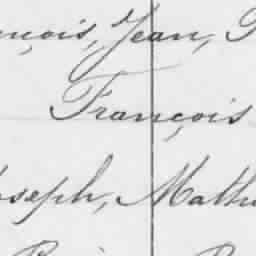 nçois, Jean,
François
oseph, Math